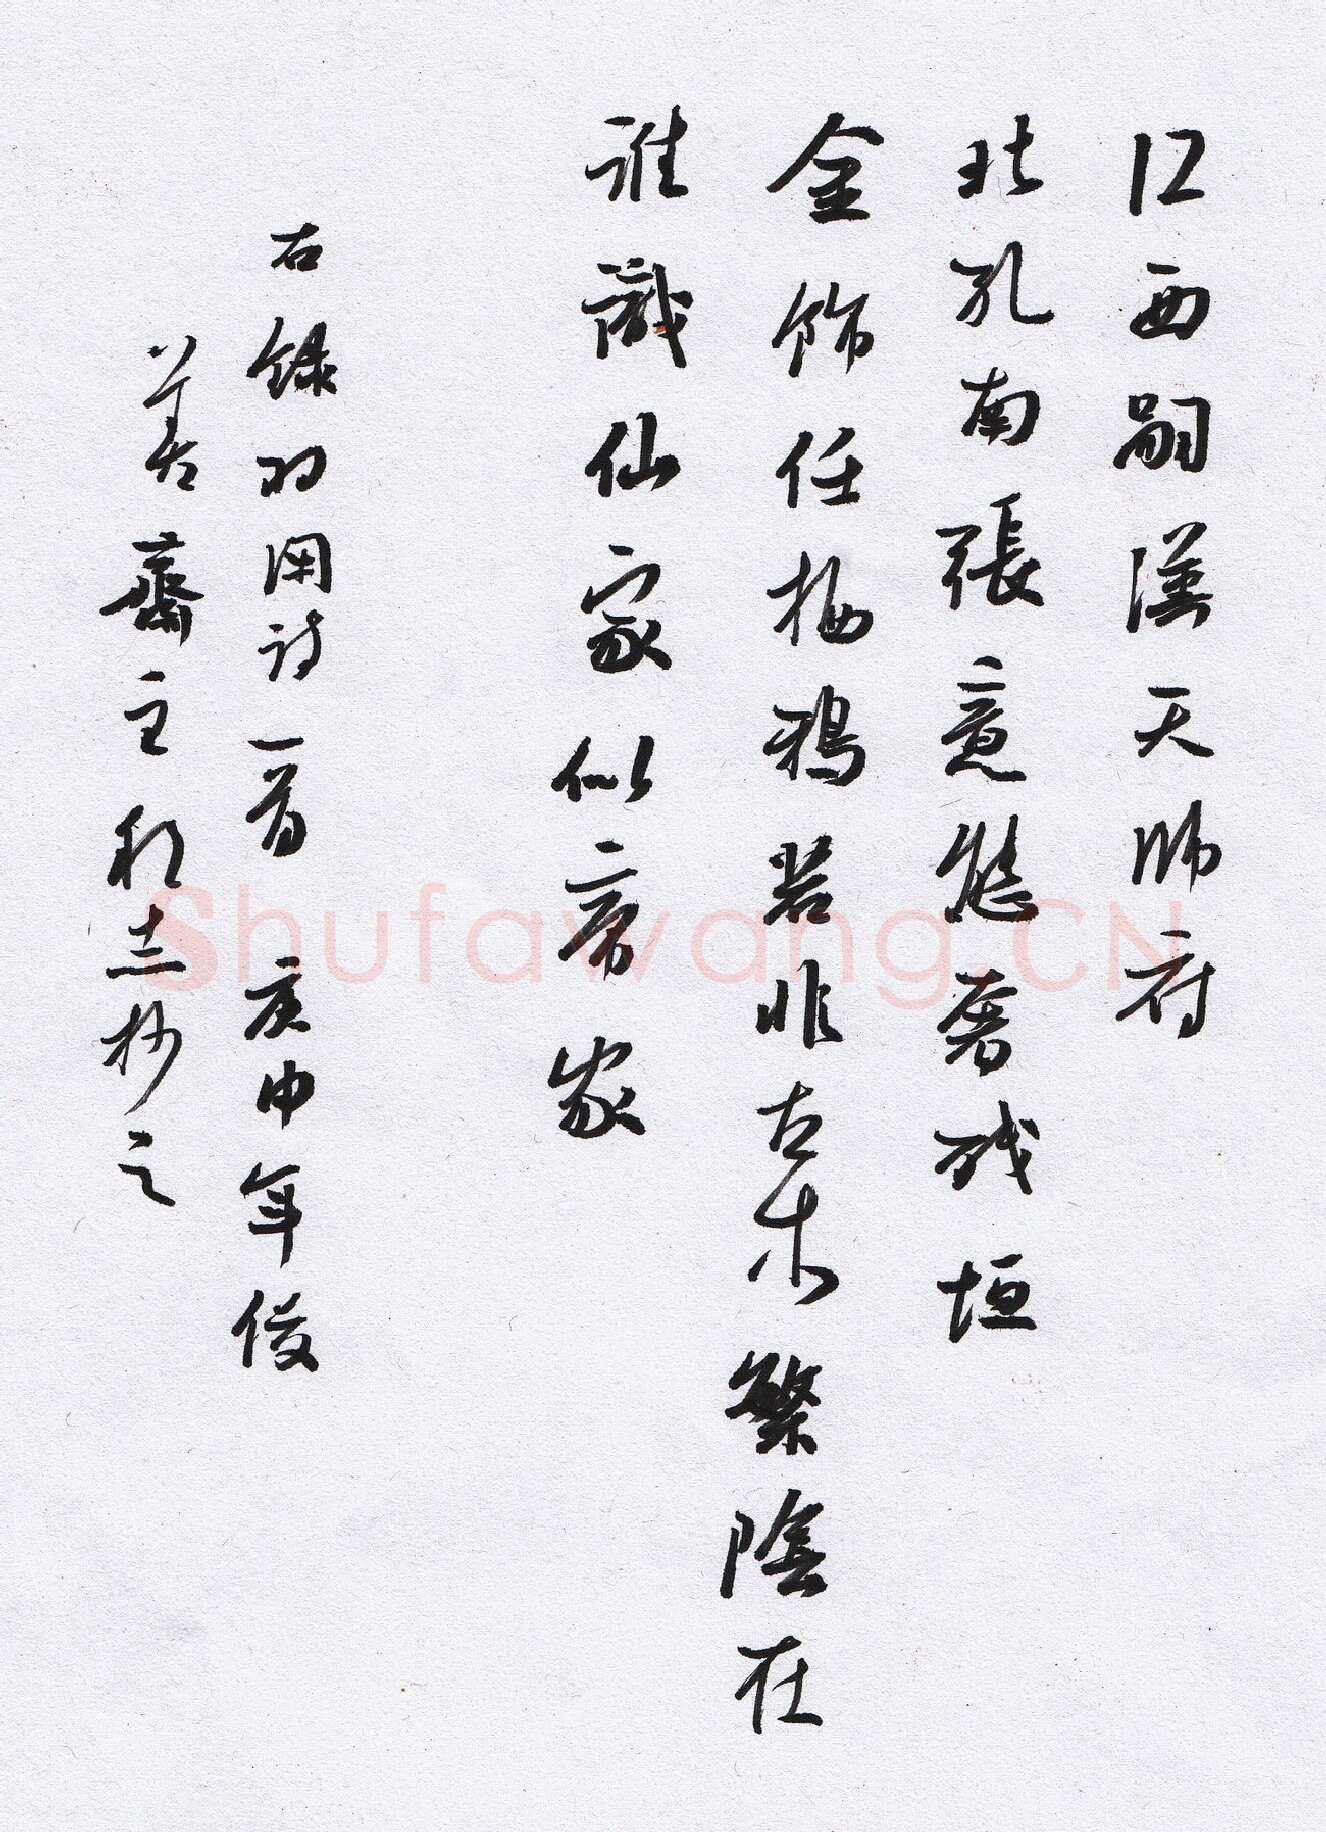 江西嗣漢天師府
北孔南張意態奢残垣
金飾任栖鴉若非古木繁陰在
誰識仙家似帝家
右録閑詩一首庚申年
齋主志抄之
Shufawang.CN